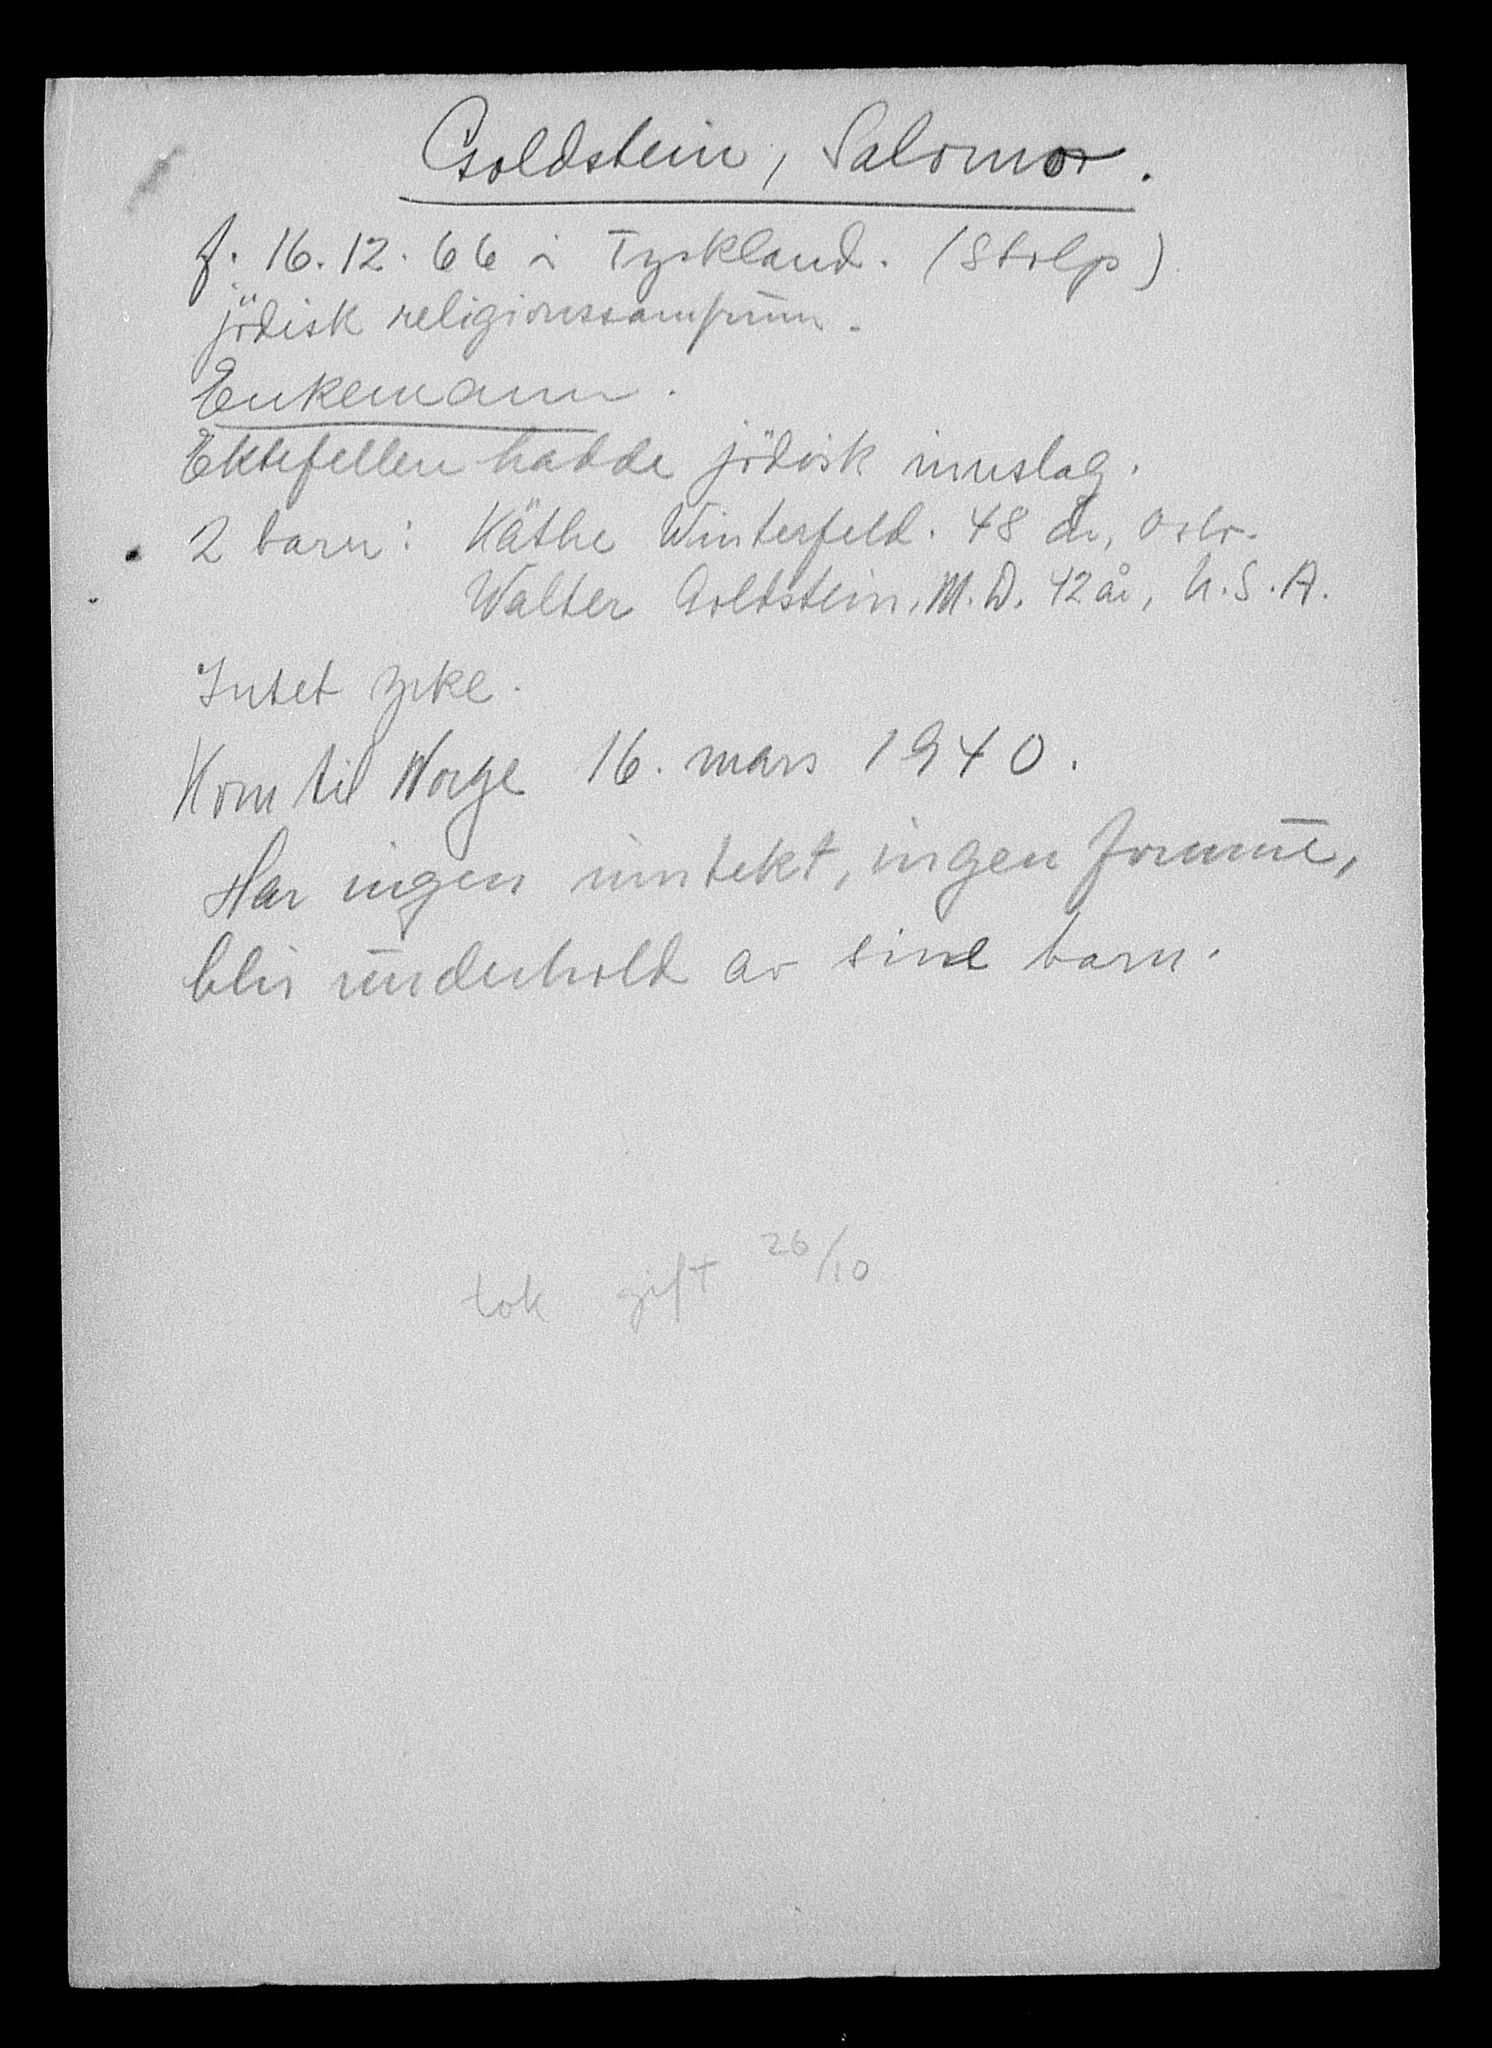 Goldstein, Salomon.
f. 16.12.66 i Tyskland. (Stolp)
jödisk religionssamfunn.
Enkemann.
Ektefellen hadde jödisk innslag.
2 barn: Käthe Winterfeld. 48 år, Oslo.
Walter Goldstein, M.D. 42 år, U.S.A.
Intet yrke.
Kom til Norge 16. mars 1940.
Har ingen inntekt, ingen formue,
blir underhold av sine barn.
tok gift 26/10